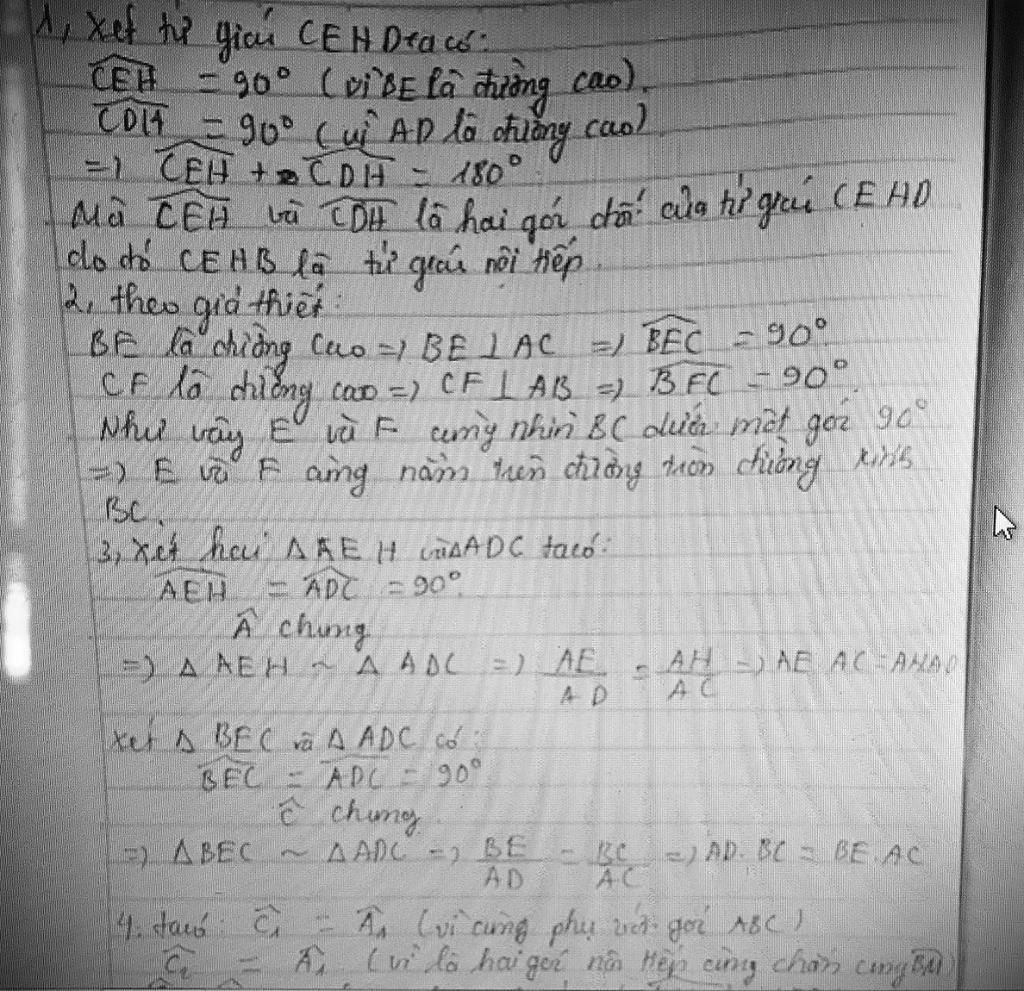 1, Xét tứ giác CEHD ta có:
CEH = 90° (vì BE là đường cao).
CDH = 90° (vì AD là đường cao)
=> CEH + CDH = 180°.
Mà CEH và CDH là hai góc đối của tứ giác CEHD
do đó CEHB là tứ giác nội tiếp.
2, theo giả thiết:
BE là đường cao => BE ⊥ AC => BEC = 90°.
CF là đường cao => CF ⊥ AB => BFC = 90°.
Như vậy E và F cùng nhìn BC dưới một góc 90°
=> E và F cùng nằm trên đường tròn đường kính
BC.
3, xét hai Δ AEH và Δ ADC ta có:
AEH = ADC = 90°.
Â chung
=> Δ AEH ~ Δ ADC => AE/AD = AH/AC => AE AC = AH AD
Xét Δ BEC và Δ ADC có:
BEC = ADC = 90°
Ĉ chung.
=> ΔBEC ~ ΔADC => BE/AD = BC/AC => AD. BC = BE.AC
4. ta có: Ĉ₁ = Â₁ (vì cùng phụ với góc ABC)
Ĉ₂ = Â₁ (vì là hai góc nội tiếp cùng chắn cung BM)